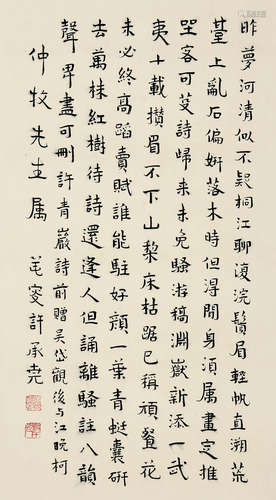 昨夢河清似不疑桐江聊復浣鬚眉輕帆直溯荒
臺上亂石偏妍落木時但得閒身須属畫定推
客可芟詩歸来未免騷游稿淵嶽新添一武
夷十載攢眉不下山黎床枯踞已稱頑餐花
未必終高蹈賣賦誰能駐好顔一葉青蜓囊研
去萬株紅樹待詩還逢人但誦離騷註八韻
聲卑盡可刪許青巖詩前贈吴岱觀後与江晥柯
仲牧先生属
芚叟許承尧